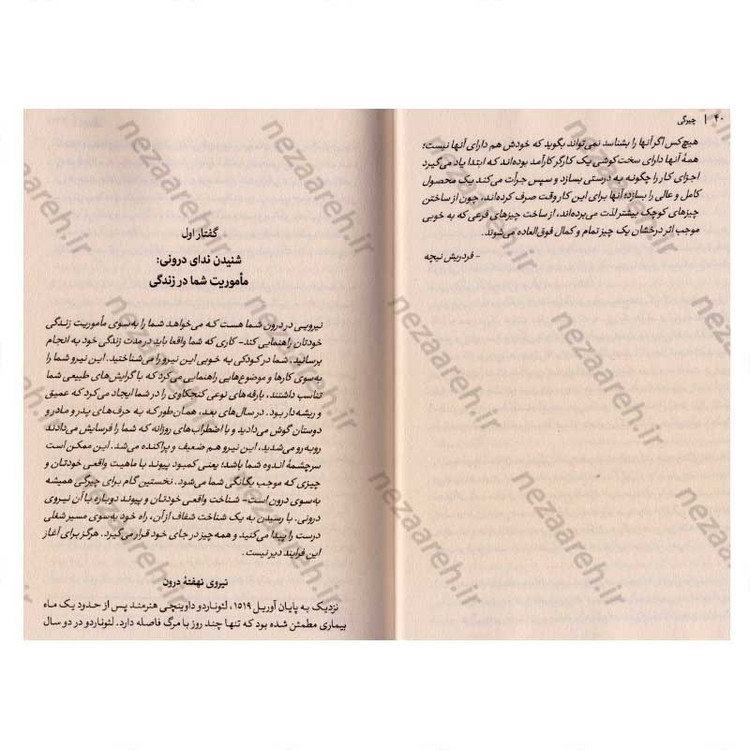 ۴۰ | چیرگی
هیچ‌کس اگر آنها را بشناسد نمی‌تواند بگوید که خودش هم دارای آنها نیست؛
همهٔ آنها دارای سخت‌کوشی یک کارگر کارآمد بوده‌اند که ابتدا یاد می‌گیرد
اجزای کار را چگونه به درستی بسازد و سپس جرأت می‌کند یک محصول
کامل و عالی را بسازد؛ آنها برای این کار وقت صرف کرده‌اند، چون از ساختن
چیزهای کوچک بیشتر لذت می‌برده‌اند، از ساخت چیزهای فرعی که به خوبی
موجب اثر درخشان یک چیز تمام و کمال فوق‌العاده می‌شوند.
- فردریش نیچه
گفتار اول
شنیدن ندای درونی:
مأموریت شما در زندگی
نیرویی در درون شما هست که می‌خواهد شما را به‌سوی مأموریت زندگی
خودتان راهنمایی کند- کاری که شما واقعا باید در مدت زندگی خود به انجام
برسانید. شما در کودکی به خوبی این نیرو را می‌شناختید. این نیرو شما را
به‌سوی کارها و موضوع‌هایی راهنمایی می‌کرد که با گرایش‌های طبیعی شما
تناسب داشتند، بارقه‌های نوعی کنجکاوی را در شما ایجاد می‌کرد که عمیق
و ریشه‌دار بود. در سال‌های بعد، همان‌طور که به حرف‌های پدر و مادر و
دوستان گوش می‌دادید و با اضطراب‌های روزانه که شما را فرسایش می‌دادند
روبه‌رو می‌شدید، این نیرو هم ضعیف و پراکنده می‌شد. این ممکن است
سرچشمهٔ اندوه شما باشد؛ یعنی کمبود پیوند با ماهیت واقعی خودتان و
چیزی که موجب یگانگی شما می‌شود. نخستین گام برای چیرگی همیشه
به‌سوی درون است- شناخت واقعی خودتان و پیوند دوباره با آن نیروی
درونی. با رسیدن به یک شناخت شفاف از آن، راه خود به‌سوی مسیر شغلی
درست را پیدا می‌کنید و همه چیز در جای خود قرار می‌گیرد. هرگز برای آغاز
این فرایند دیر نیست.
نیروی نهفتهٔ درون
نزدیک به پایان آوریل ۱۵۱۹، لئوناردو داوینچی هنرمند پس از حدود یک ماه
بیماری مطمئن شده بود که تنها چند روز با مرگ فاصله دارد. لئوناردو در دو سال
nezaareh.ir